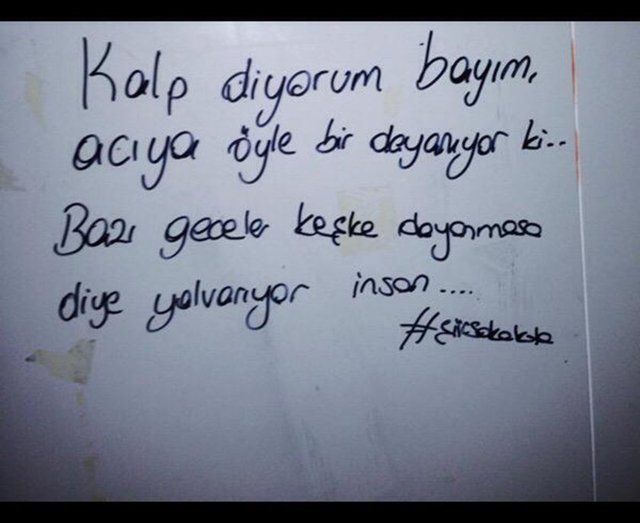 Kalp diyorum bayım,
acıya öyle bir dayanıyor ki..
Bazı geceler keşke dayanmasa
diye yalvarıyor insan....
#şiirsokakta